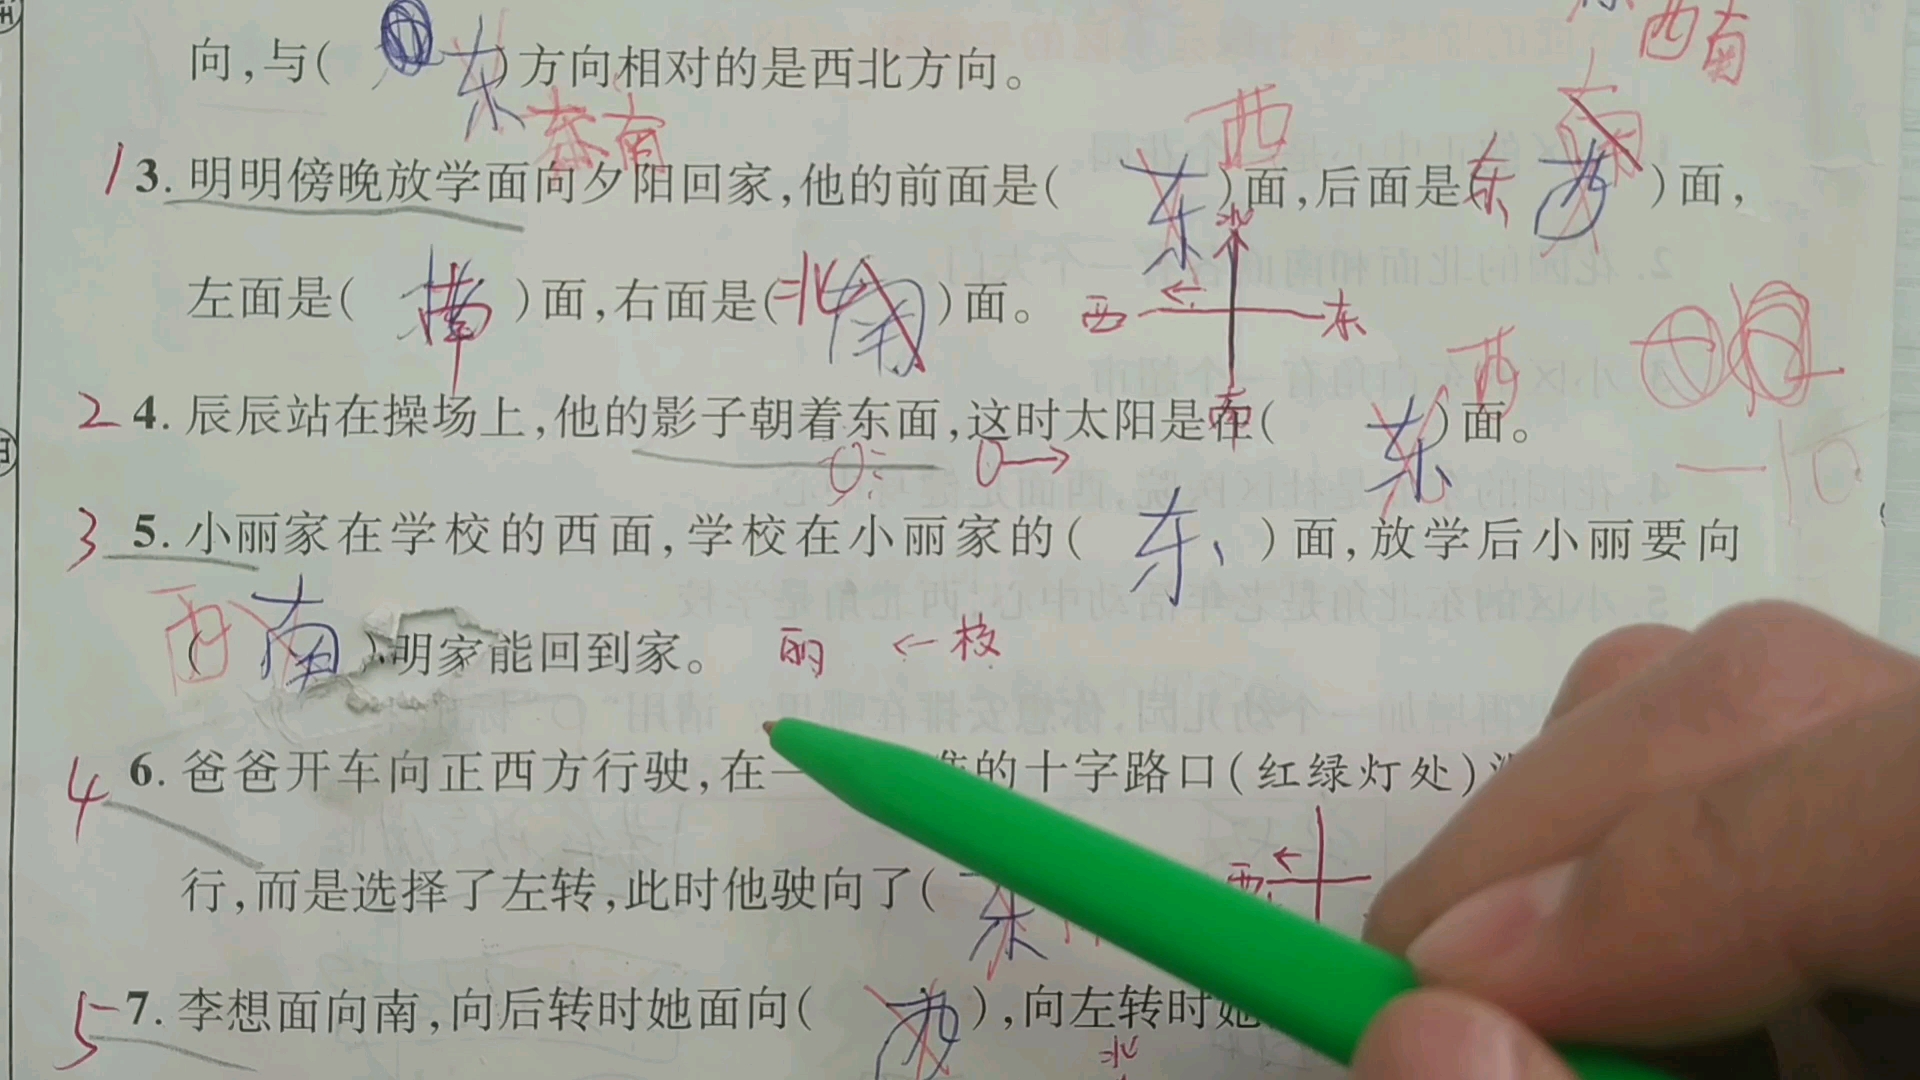 西南
向,与( 东 )方向相对的是西北方向。
东南
西 南
1 3. 明明傍晚放学面向夕阳回家,他的前面是( 东 )面,后面是( 东 西 )面,
北
左面是( 南 )面,右面是( 北 南 )面。
西 东
南
西
2 4. 辰辰站在操场上,他的影子朝着东面,这时太阳是在( 东 )面。
-10
3 5. 小丽家在学校的西面,学校在小丽家的( 东 )面,放学后小丽要向
西( 南 )明家能回到家。 丽 ←校
4 6. 爸爸开车向正西方行驶,在一 的十字路口(红绿灯处)
行,而是选择了左转,此时他驶向了( 东 西
5 7. 李想面向南,向后转时她面向( 西 ),向左转时她
北